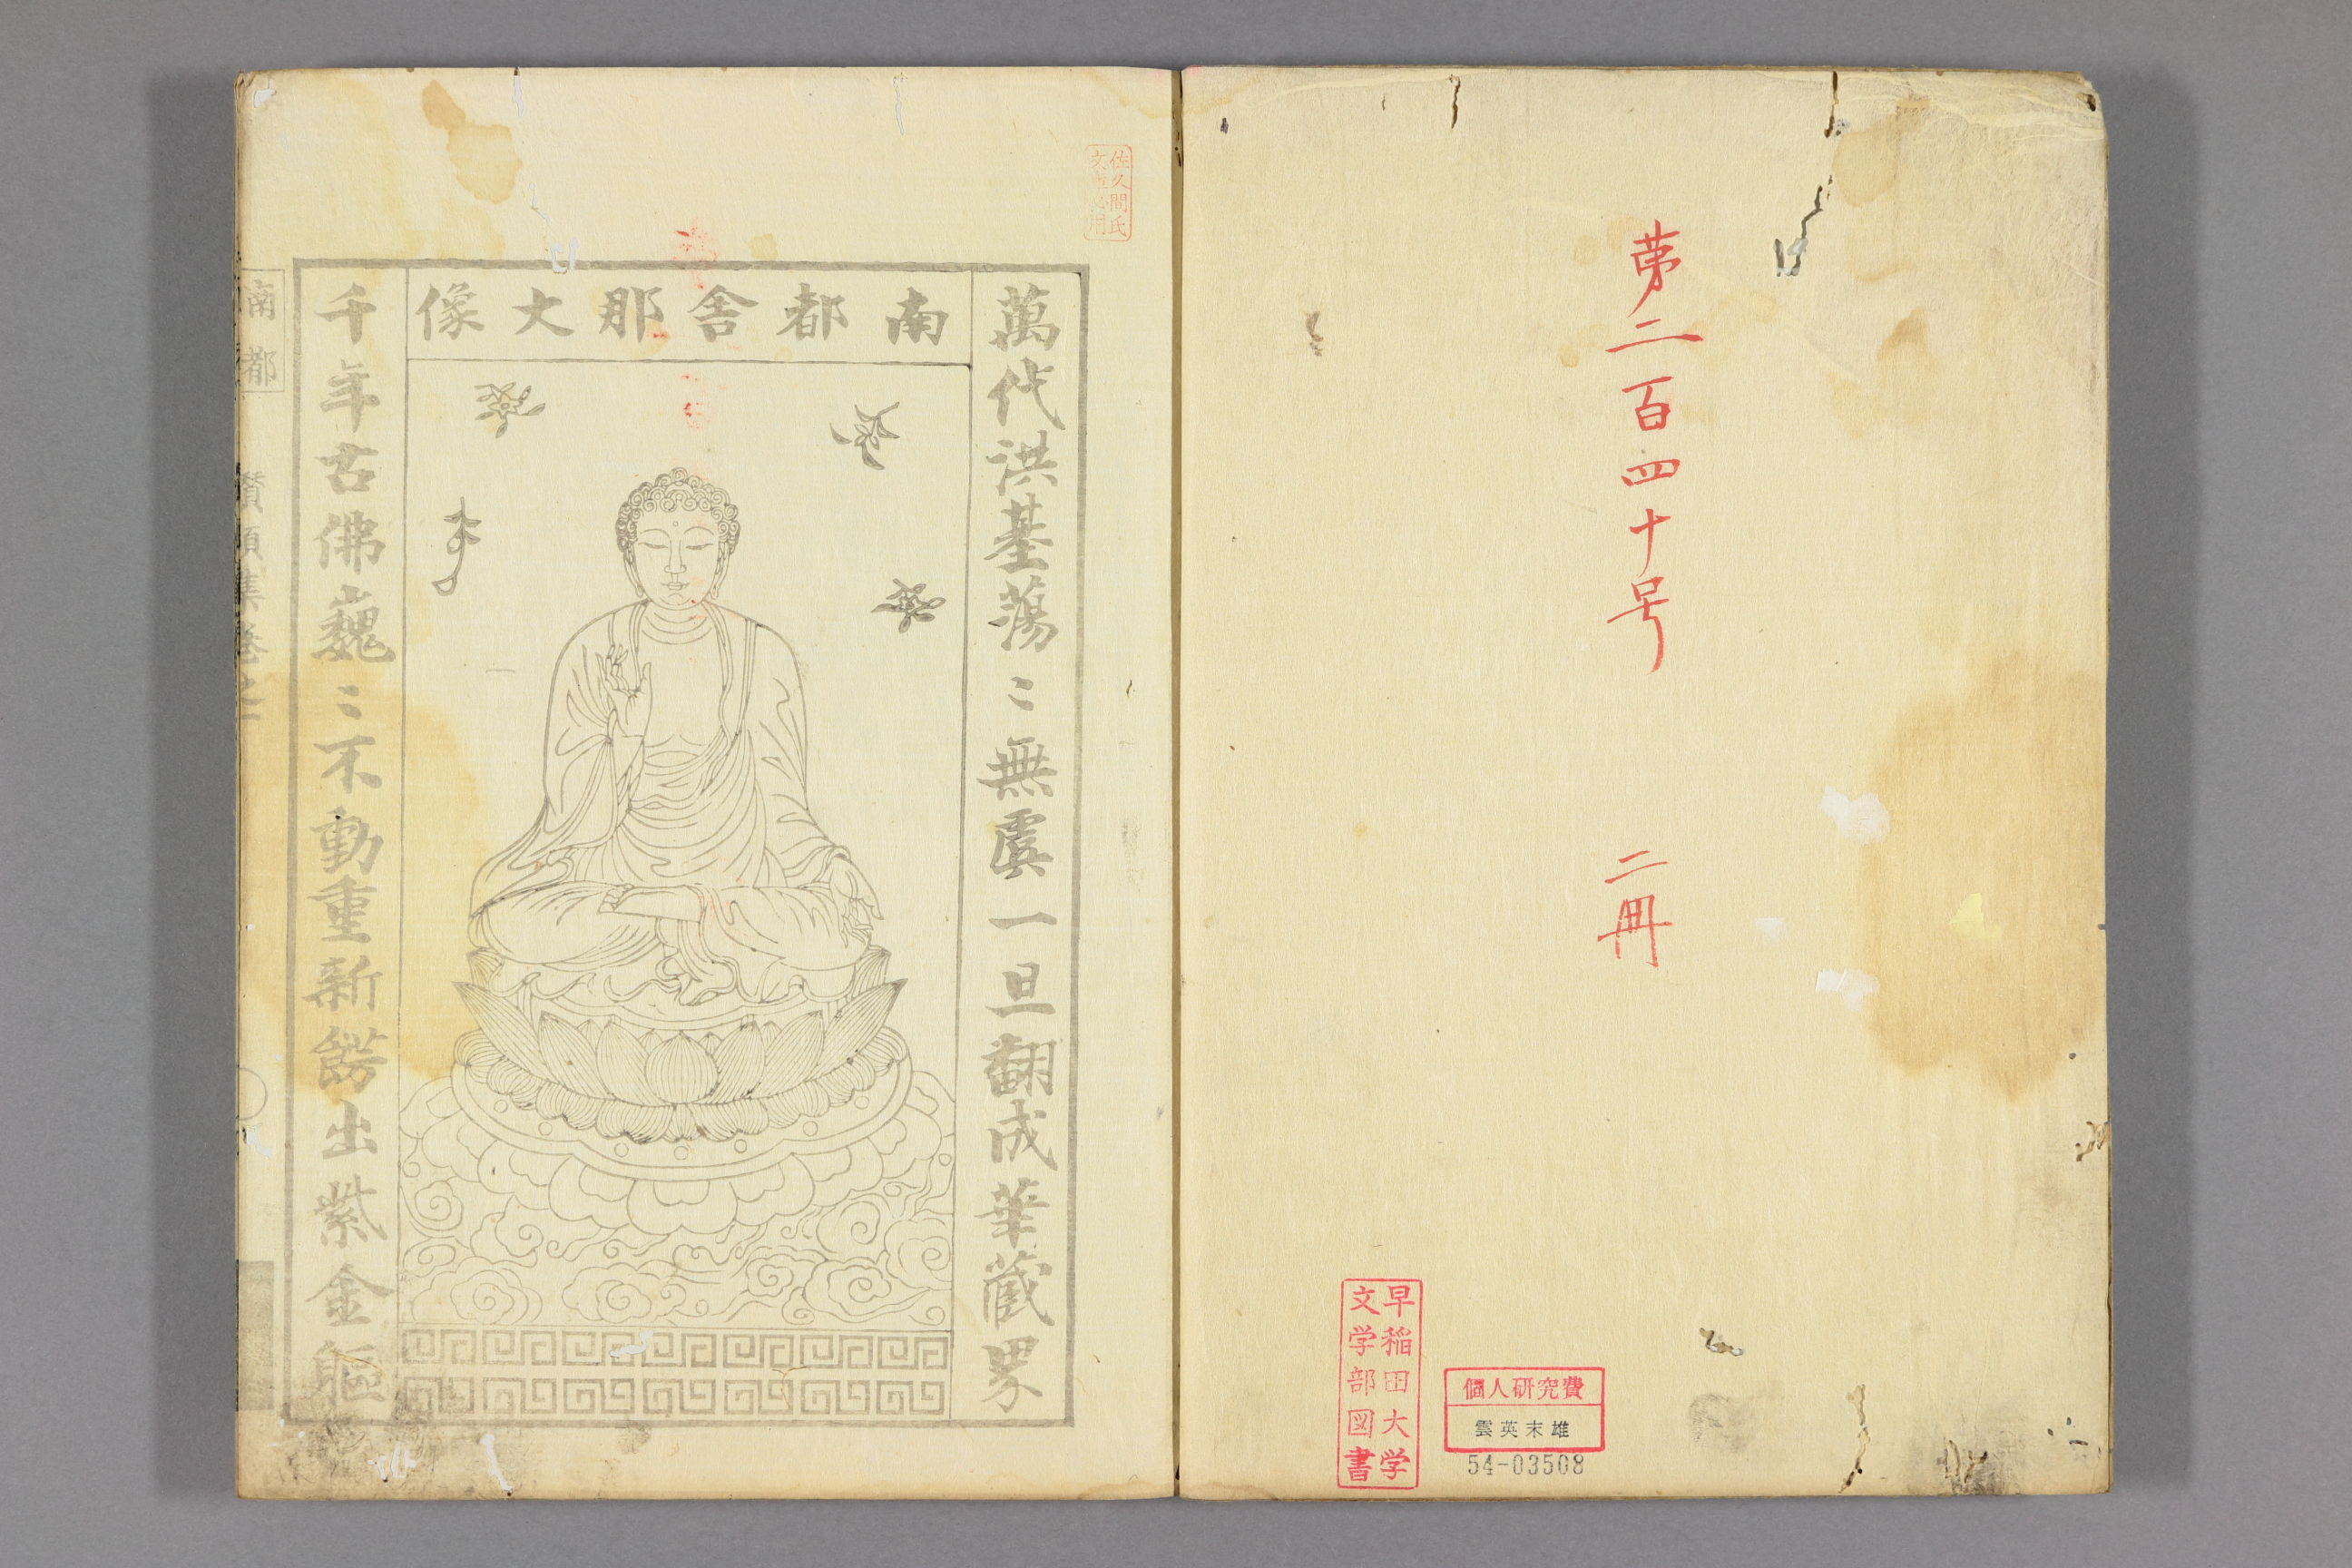 第二百四十号
二冊
早稲田大学
文学部図書
個人研究費
雲英末雄
54-03508
佐久間氏
萬代洪基蕩〻無虞一旦翻成華蔵界
南都舎那大像
千年古佛巍〻不動重新鍔出紫金軀
南都
讃頌集巻之